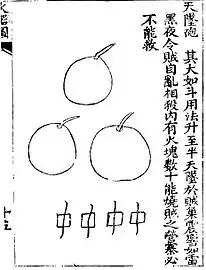 天墜砲 其大如斗用法升至半天墜於賊巢震響如雷
黑夜令賊自亂相殺內有火塊數十能燒賊之營寨必
不能救